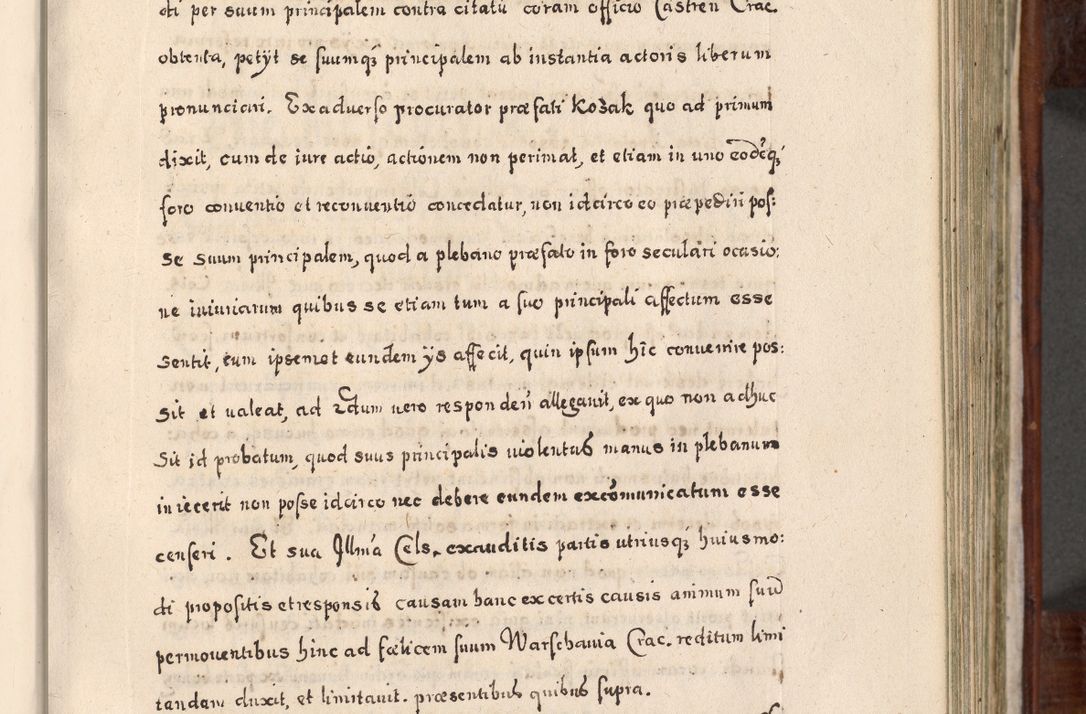 di per suum principalem contra citatū coram officio Castren Crac.
obtenta, petÿt se suumq₃ principalem ab instantia actoris liberum
pronunciari. Ex aduerso procurator præfati Kozak quo ad primum
dixit, cum de iure actio, actionem non perimat, et etiam in uno eodēq₃
foro conuentio et reconuentio concedatur, non idcirco eo præpediri pos:
se suum principalem, quod a plebano præfato in foro seculari ocasio:
ne iniuriarum quibus se etiam tum a suo principali affectum esse
sentit, cum ipsemet eundem ÿs affecit, quin ipsum hîc conuenire pos:
sit et ualeat, ad 2dum uero respondeñ allegauit, ex quo non adhuc
sit id probatum, quod suus principalis uiolentas manus in plebanum
iniecerit non posse idcirco nec debere eundem excōmunicatum esse
censeri. Et sua Illma Cels. exauditis partis utriusq₃ huiusmo:
di propositis et responsis causam hanc ex certis causis animum suū
permouentibus hinc ad fœlicem suum Warschauia Crac. reditum limi
tandam duxit, et limitauit. præsentibus quibus supra.